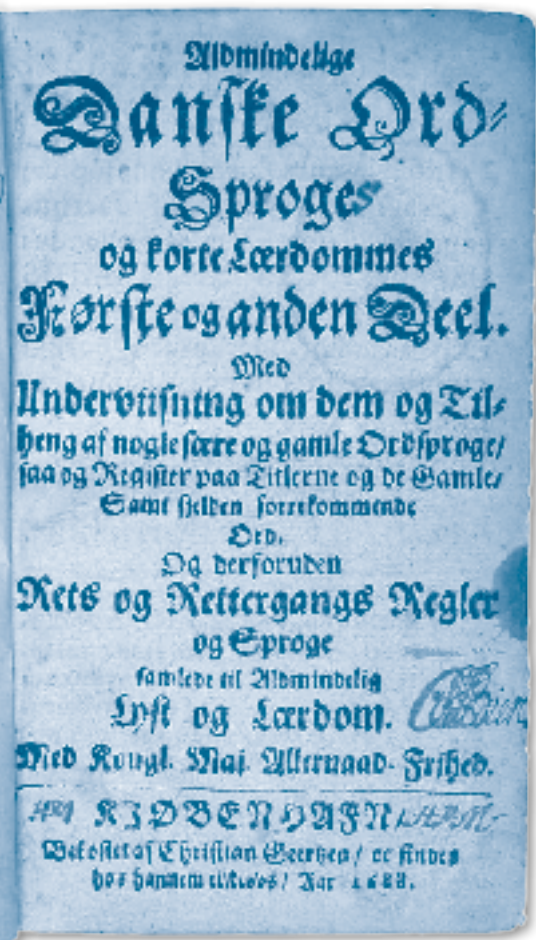 Aldmindelige
Danske Ord-
Sproges
og korte Lærdommes
Første og anden Deel.
Med
Underviisning om dem og Til-
heng af nogle sære og gamle Ordsproge/
saa og Register paa Titlerne og de Gamle/
Samt sielden forrekommende
Ord.
Og derforuden
Rets og Rettergangs Regler
og Sproge
samlede til Aldmindelig
Lyst og Lærdom.
Med Kongl. Maj. Allernaad. Frihed.
KJØBENHAFN
Bekostet af Christian Geertzen/ oc findes
hos hannem / Aar 1688.